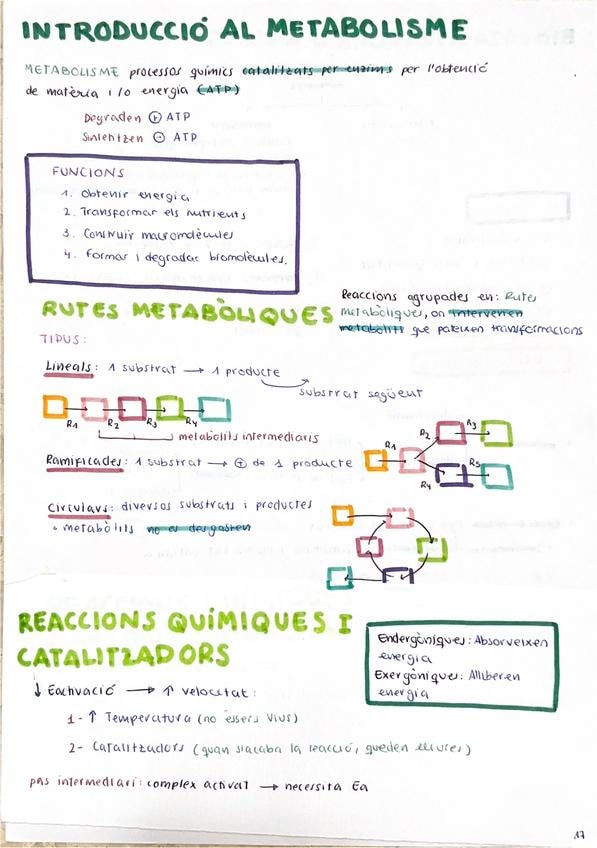 INTRODUCCIÓ AL METABOLISME
METABOLISME processos químics catalitzats per enzims per l'obtenció
de matèria i/o energia (ATP)
Degraden ⊕ ATP
Sintetitzen ⊖ ATP
FUNCIONS
1. Obtenir energia
2. Transformar els nutrients
3. Construir macromolècules
4. Formar i degradar biomolècules.
RUTES METABÒLIQUES
Reaccions agrupades en: Rutes
metabòliques, on intervenen
metabolits que pateixen transformacions
TIPUS:
Lineals: 1 substrat → 1 producte
substrat següent
R1 R2 R3 R4
metabòlits intermediaris
Ramificades: 1 substrat → ⊕ de 1 producte
R1 R2 R3 R4 R5
Circulars: diversos substrats i productes
• metabòlits no es desgasten
REACCIONS QUÍMIQUES I
CATALITZADORS
Endergòniques: Absorveixen
energia
Exergòniques: Alliberen
energia
↓ Eactivació → ↑ velocitat:
1- ↑ Temperatura (no éssers vius)
2- Catalitzadors (quan s'acaba la reacció, queden lliures)
pas intermediari: complex activat → necessita Ea
17